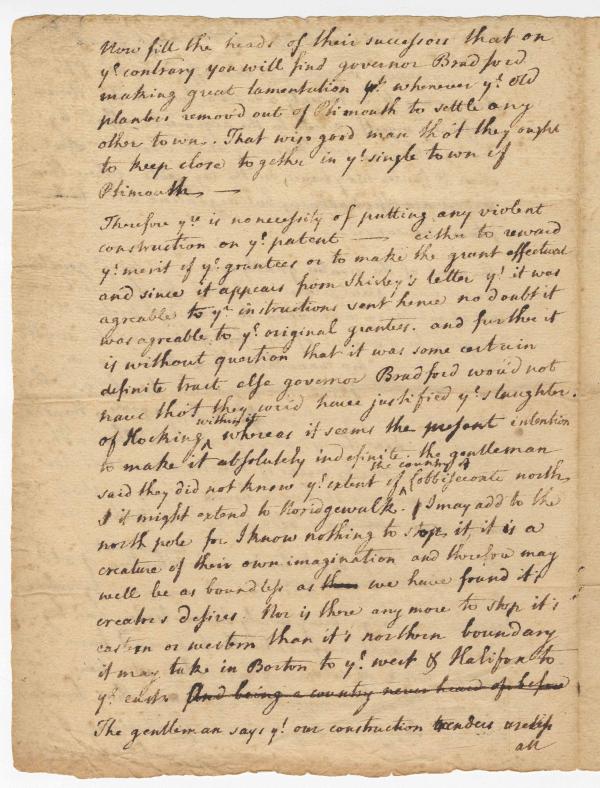 Now fill the heads of their successors that on
yᵉ contrary you will find governor Bradford
making great lamentation yᵗ whenever yᵉ old
planters remov'd out of Plimouth to settle any
other town. That wise good man tho't they ought
to keep close together in yᵉ single town of
Plimouth —
Therefore yʳᵉ is no necessity of putting any violent
construction on yᵉ patent — either to reward
yᵉ merit of yᵉ grantees or to make the grant effectual
and since it appears from Shirley's letter yᵗ it was
agreable to yʳ instructions sent hence no doubt it
was agreable to yᵉ original grantees. and further it
is without question that it was some certain
definite tract else governor Bradford would not
have tho't they wou'd have justified yᵉ slaughter.
of Hocking within it whereas it seems the present intention
to make it absolutely indefinite. the gentleman
said they did not know yᵉ extent of the country of Cobbisecontee north
& it might extend to Noridgewalk. I may add to the
north pole for I know nothing to stop it, it is a
creature of their own imagination and therefore may
well be as boundless as we have found it's
creators desires. Nor is there any more to stop it's
eastern or western than it's northern boundary
it may take in Boston to yᵉ west & Halifax to
yᵉ east. And being a country never heard of before
The gentleman says yᵗ our construction renders useless
all